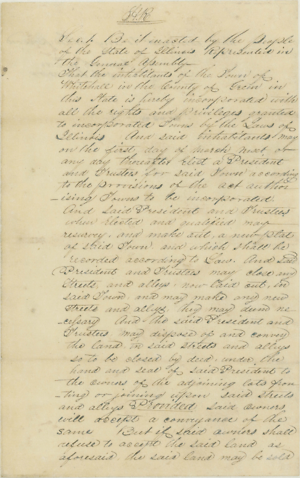 Sec 1 Be it enacted by the People
of the State of Illinois represented in
the General Assembly
That the inhabitants of the Town of
Whitehall in the County of Green in
this State is hereby incorporated with
all the rights and privileges granted
to incorporated Towns by the Laws of
Illinois And said inhabitants may
on the first day of March next or
any day thereafter Elect a President
and Trustees for said Town according
to the provisions of the act author
-ising Towns to be incorporated
And said President and Trustees
when Elected and qualified may
resurvey and make out a new plat
of said Town and which shall be
recorded according to Law. And said
President and Trustees may close any
Streets and alleys now laid out in
said Town and may make any new
Streets and alleys they may deem ne
cessary And the said President and
Trustees may dispose of and convey
the land in said streets and alleys
so to be closed by deed under the
hand and seal of said President to
the owners of the adjoining lots fron
ting or joining upon said streets
and alleys Provided said owners
will accept a conveyance of the
same But if said owners shall
refuse to accept the said land as
aforesaid the said land may be sold